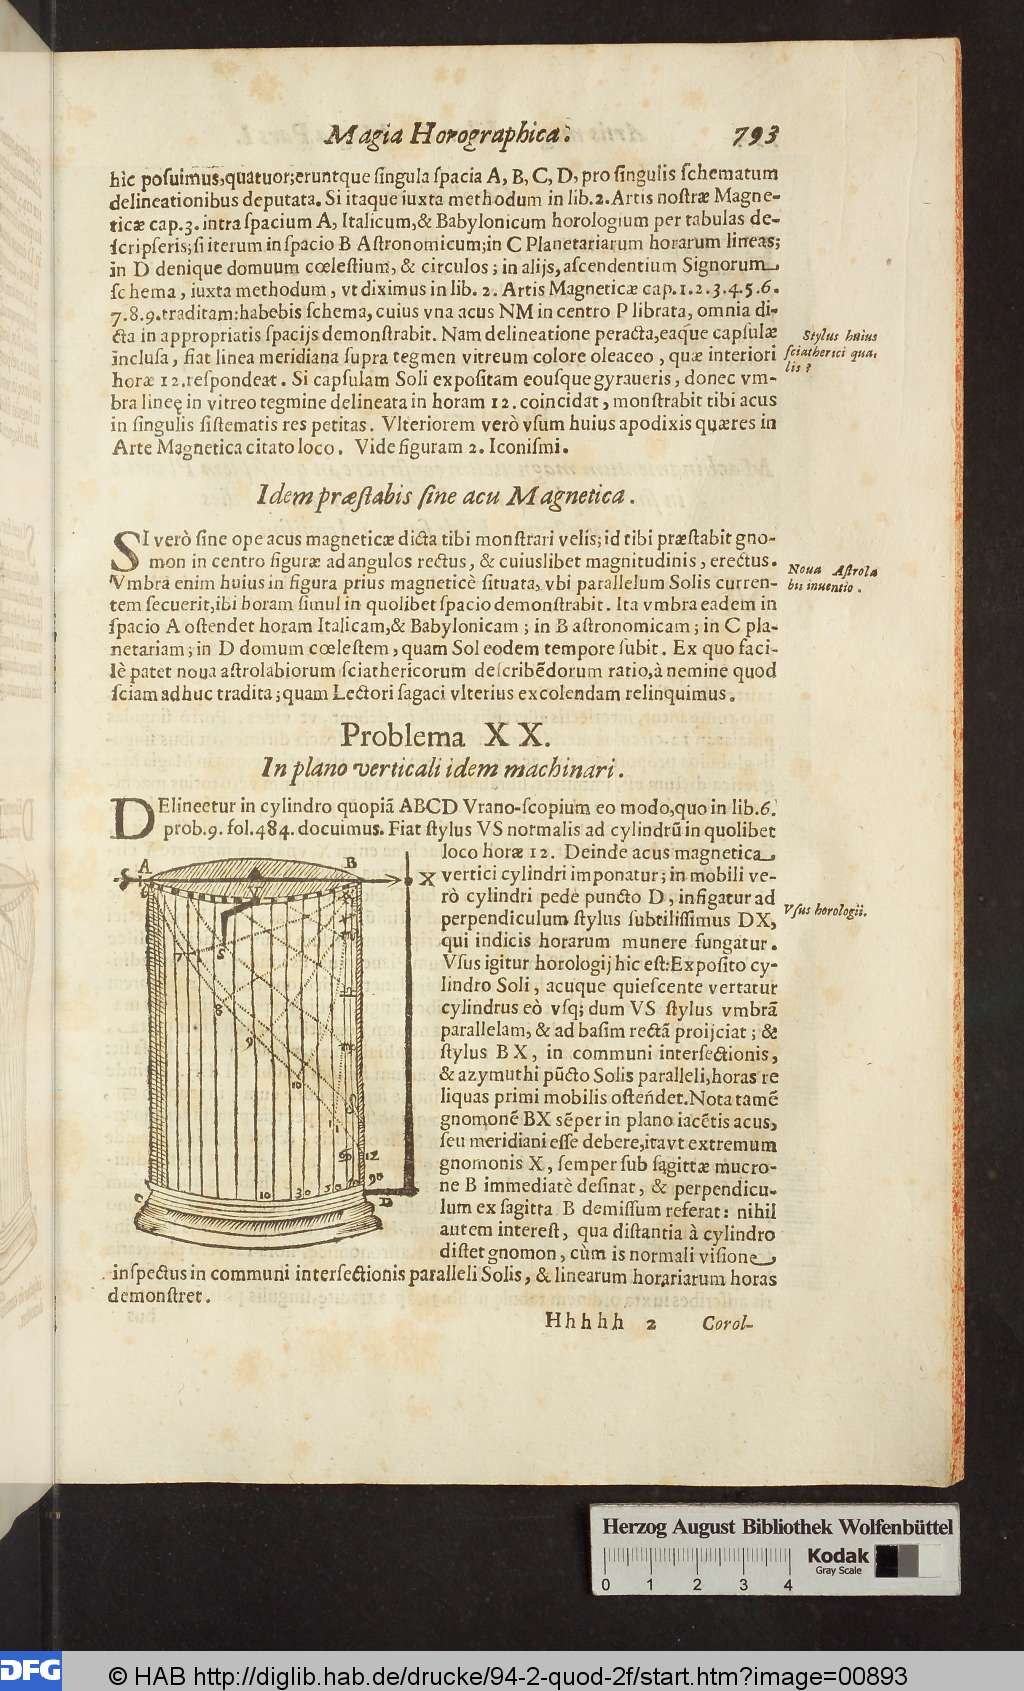 Magia Horographica. 793
hìc posuimus, quatuor; eruntque singula spacia A, B, C, D, pro singulis schematum
delineationibus deputata. Si itaque iuxta methodum in lib. 2. Artis nostræ Magne-
ticæ cap. 3. intra spacium A, Italicum, & Babylonicum horologium per tabulas de-
scripseris; si iterum in spacio B Astronomicum; in C Planetariarum horarum lineas;
in D denique domuum cœlestium, & circulos; in alijs, ascendentium Signorum
schema, iuxta methodum, vt diximus in lib. 2. Artis Magneticæ cap. 1. 2. 3. 4. 5. 6.
7. 8. 9. traditam: habebis schema, cuius vna acus NM in centro P librata, omnia di-
cta in appropriatis spacijs demonstrabit. Nam delineatione peracta, eaque capsulæ
inclusa, fiat linea meridiana supra tegmen vitreum colore oleaceo, quæ interiori
horæ 12. respondeat. Si capsulam Soli expositam eousque gyraueris, donec vm-
bra lineę in vitreo tegmine delineata in horam 12. coincidat, monstrabit tibi acus
in singulis sistematis res petitas. Vlteriorem verò vsum huius apodixis quæres in
Arte Magnetica citato loco. Vide figuram 2. Iconismi.
Stylus huius
sciatherici qua-
lis?
Idem præstabis sine acu Magnetica.
SI verò sine ope acus magneticæ dicta tibi monstrari velis; id tibi præstabit gno-
mon in centro figuræ ad angulos rectus, & cuiuslibet magnitudinis, erectus.
Vmbra enim huius in figura prius magneticè situata, vbi parallelum Solis curren-
tem secuerit, ibi horam simul in quolibet spacio demonstrabit. Ita vmbra eadem in
spacio A ostendet horam Italicam, & Babylonicam; in B astronomicam; in C pla-
netariam; in D domum cœlestem, quam Sol eodem tempore subit. Ex quo faci-
lè patet noua astrolabiorum sciathericorum describēdorum ratio, à nemine quod
sciam adhuc tradita; quam Lectori sagaci vlterius excolendam relinquimus.
Noua Astrola
bii inuentio.
Problema XX.
In plano verticali idem machinari.
DElineetur in cylindro quopiã ABCD Vrano-scopium eo modo, quo in lib. 6.
prob. 9. fol. 484. docuimus. Fiat stylus VS normalis ad cylindrũ in quolibet
loco horæ 12. Deinde acus magnetica
vertici cylindri imponatur; in mobili ve-
rò cylindri pede puncto D, infigatur ad
perpendiculum stylus subtilissimus DX,
qui indicis horarum munere fungatur.
Vsus igitur horologij hic est: Exposito cy-
lindro Soli, acuque quiescente vertatur
cylindrus eò vsq; dum VS stylus vmbrã
parallelam, & ad basim rectã proijciat; &
stylus BX, in communi intersectionis,
& azymuthi pũcto Solis paralleli, horas re
liquas primi mobilis ostendet. Nota tamē
gnomonē BX sēper in plano iacētis acus,
seu meridiani esse debere, itavt extremum
gnomonis X, semper sub sagittæ mucro-
ne B immediatè desinat, & perpendicu-
lum ex sagitta B demissum referat: nihil
autem interest, qua distantia à cylindro
distet gnomon, cùm is normali visione
inspectus in communi intersectionis paralleli Solis, & linearum horariarum horas
demonstret.
Vsus horologii.
A B X
V
6
7 S
8
9
10
11
12
10 30 50 70 90
C D
Hhhhh 2 Corol-
Herzog August Bibliothek Wolfenbüttel
Kodak
Gray Scale
0 1 2 3 4
DFG © HAB http://diglib.hab.de/drucke/94-2-quod-2f/start.htm?image=00893